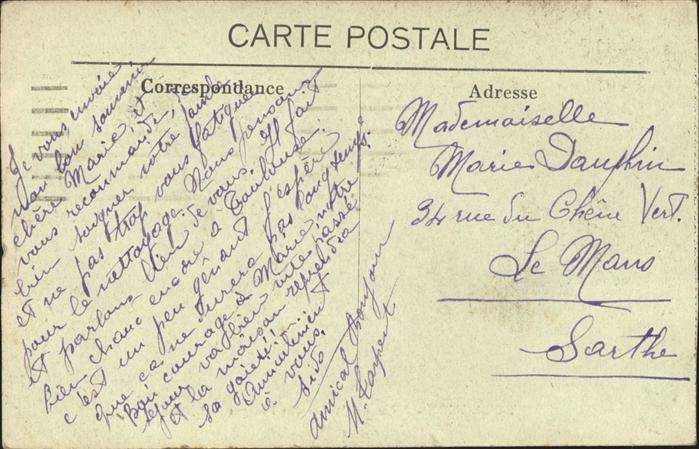 CARTE POSTALE
Correspondance
Adresse
Je vous envoie
mon bon souvenir
chère Marie, et
vous recommande,
bien soigner votre santé
et ne pas trop vous fatiguer
pour le nettoyage. Nous pensons
et parlons bien de vous. Il fait
bien chaud encore à Toulouse.
c'est un peu gênant j'espère
que ça ne durera pas longtemps.
Bon courage à Marie, notre
séjour va bien vite passé
et la maison reprendra
sa gaieté!
Amicalement
à vous,
amical bonjour
M.
Mademoiselle
Marie Dauphin
34 rue du Chêne Vert.
Le Mans
Sarthe